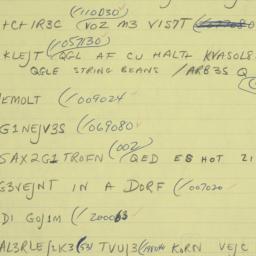 (110D30)
+C+1R3C (VOZ M3 V1S7T
(057130)
KLEJT (QGL AF CU HALTL KVASOL8
QGLE STRING BEANS /ARB3S Q
EMOLT (/009024
G1NEJV3S (/069080
(002)
SAX2G1TROFN (QED E8 HOT 21
G3VEJNT IN A DORF (/007020
D1 GOJ1M (/200063
AL3RLEJ2K3 TVUJ3 KORN VEJC